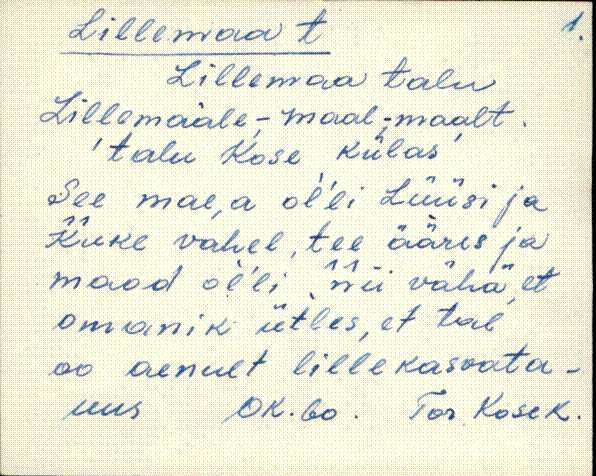 Lillemaa t 1.
Lillemaa talu
Lillemaale, -maal, -maalt.
'talu Kose külas'
See mae,a ol'li Lüüsi ja
Kuke vahel, tee ääres ja
maod ol'li nii vähä, et
omanik ütles, et tal
oo aenult lillekasvata-
uus OK. 60. Tor Kose k.